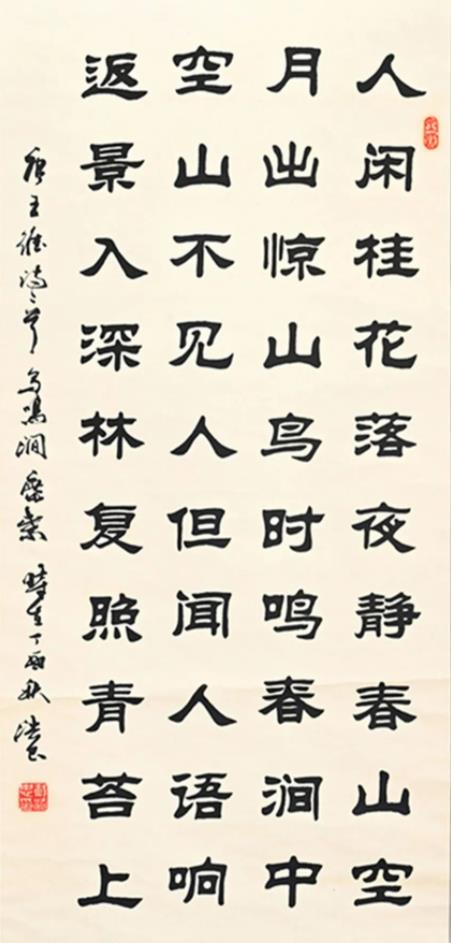 人闲桂花落夜静春山空
月出惊山鸟时鸣春涧中
空山不见人但闻人语响
返景入深林复照青苔上
唐王维诗二首鸟鸣涧鹿柴时在丁酉秋